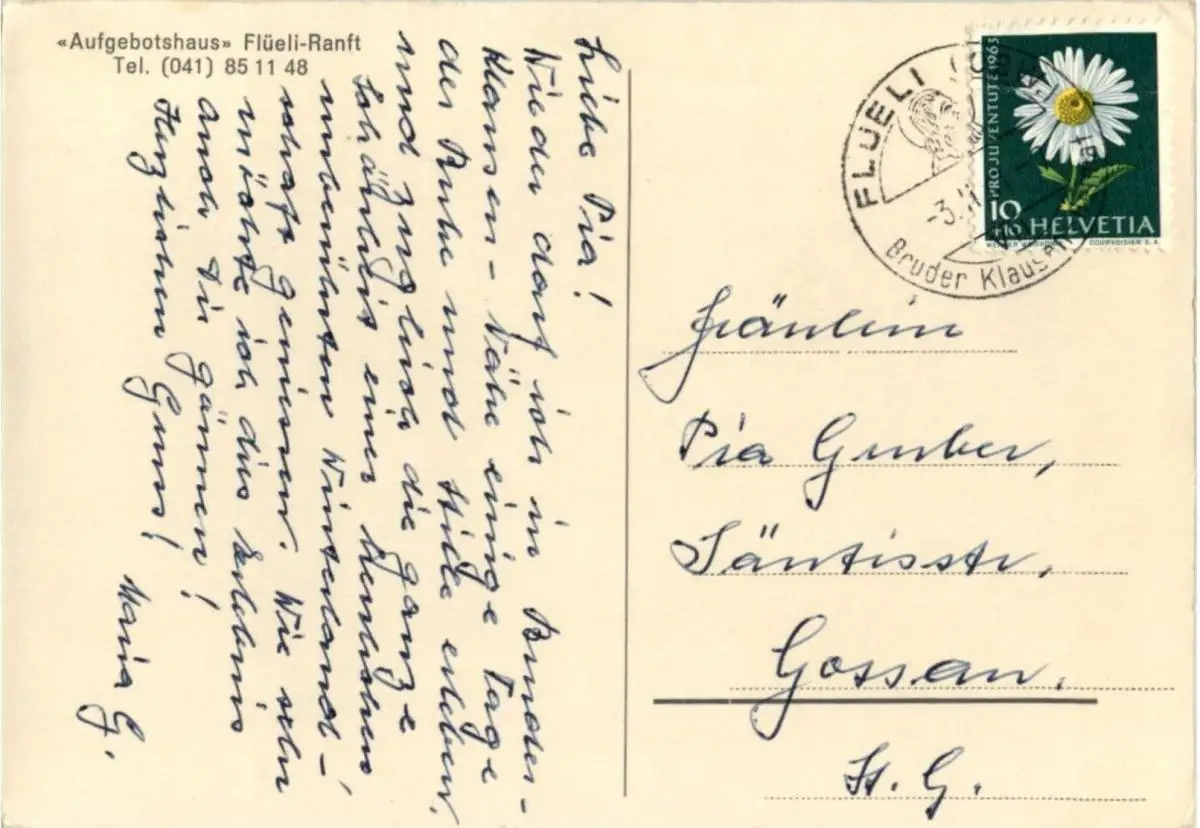 «Aufgebotshaus» Flüeli-Ranft
Tel. (041) 85 11 48
Liebe Pia!
Wieder darf ich in Bruder-
Klausen-Nähe einige Tage
der Ruhe und Stille erleben,
und zugleich die ganze
Schönheit einer herrlichen
unberührten Winterland-
schaft geniessen. Wie sehr
möchte ich dies Erlebnis
auch Dir gönnen!
Herzlichen Gruss!
Maria G.
FLÜELI
Bruder Klausen
PRO JUVENTUTE 1963
10
+10 HELVETIA
COURVOISIER S.A.
Fräulein
Pia Gruber,
Säntisstr,
Gossau.
St. G.